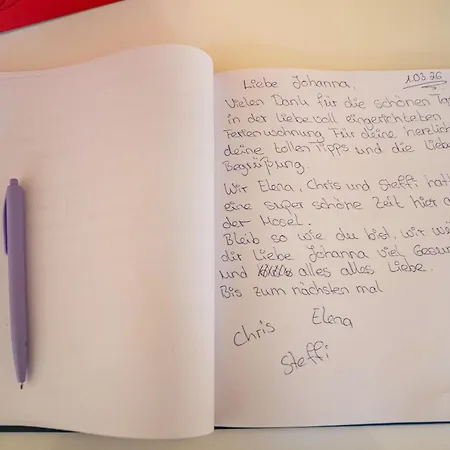 Liebe Johanna, 1.03.26
Vielen Dank für die schönen
in der Liebevoll eingerichteten
Ferienwohnung. Für deine
deine tollen Tipps und die Liebe
Begrüßung.
Wir Elena, Chris und Steffi
eine super schöne Zeit hier
der Mosel.
Bleib so wie du bist, wir
dir Liebe Johanna viel
und alles alles Liebe.
Bis zum nächsten mal
Elena
Chris
Steffi